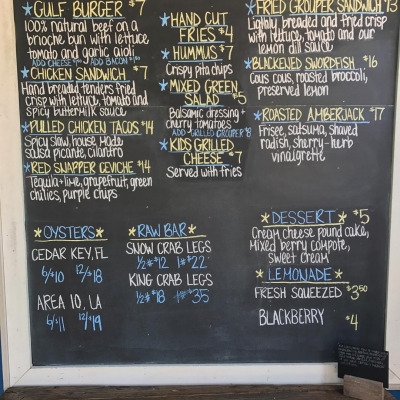 GULF BURGER $7
100% natural beef on a
brioche bun with lettuce
tomato and garlic aioli
ADD CHEESE ADD BACON
CHICKEN SANDWICH $7
Hand breaded tenders fried
crisp with lettuce, tomato and
spicy buttermilk sauce
PULLED CHICKEN TACOS $14
Spicy slaw, house made
salsa picante, cilantro
RED SNAPPER CEVICHE $14
Tequila + lime, grapefruit, green
chilies, purple chips
HAND CUT
FRIES $4
HUMMUS $7
Crispy pita chips
MIXED GREEN
SALAD $5
Balsamic dressing +
cherry tomatoes
ADD GRILLED GROUPER $8
KIDS GRILLED
CHEESE $7
Served with fries
FRIED GROUPER SANDWICH $13
Lightly breaded and fried crisp
with lettuce, tomato and our
lemon dill sauce
BLACKENED SWORDFISH $16
Cous cous, roasted broccoli,
preserved lemon
ROASTED AMBERJACK $17
Frisee, satsuma, shaved
radish, sherry-herb
vinaigrette
OYSTERS
CEDAR KEY, FL
6/$10 12/$18
AREA 10, LA
6/$11 12/$19
RAW BAR
SNOW CRAB LEGS
½# $12 1# $22
KING CRAB LEGS
½# $18 1# $35
DESSERT $5
Cream cheese pound cake,
Mixed berry compote,
sweet cream
LEMONADE
FRESH SQUEEZED $3.50
BLACKBERRY $4